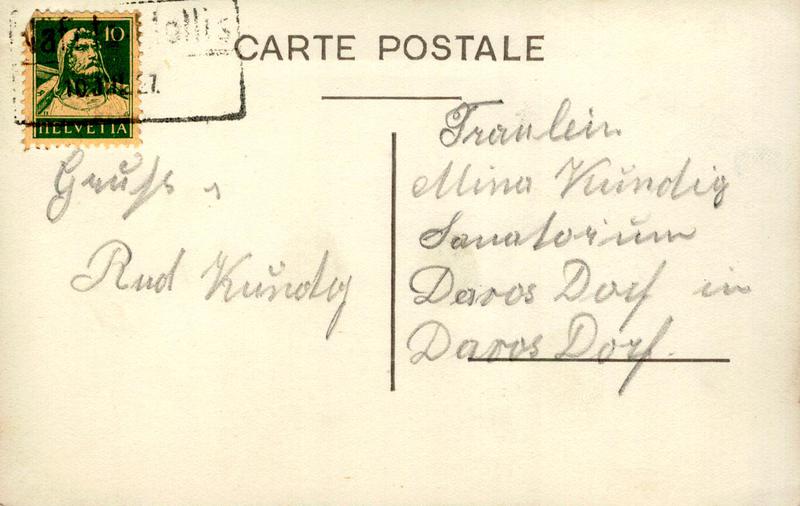 Näfels-Mollis
10
HELVETIA
CARTE POSTALE
Gruss
Rud Kündig
Fräulein
Mina Kündig
Sanatorium
Davos Dorf in
Davos Dorf.